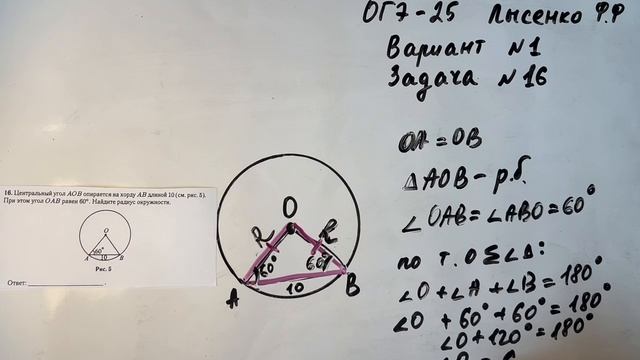 ОГЭ-25 Лысенко Ф.Ф
Вариант №1
Задача №16
16. Центральный угол AOB опирается на хорду AB длиной 10 (см. рис. 5).
При этом угол OAB равен 60°. Найдите радиус окружности.
O
60°
A 10 B
Рис. 5
Ответ:
O
R R
60° 60°
A 10 B
OA = OB
△AOB - р.б.
∠OAB = ∠ABO = 60°
по т. О Σ∠△:
∠O + ∠A + ∠B = 180°
∠O + 60° + 60° = 180°
∠O + 120° = 180°